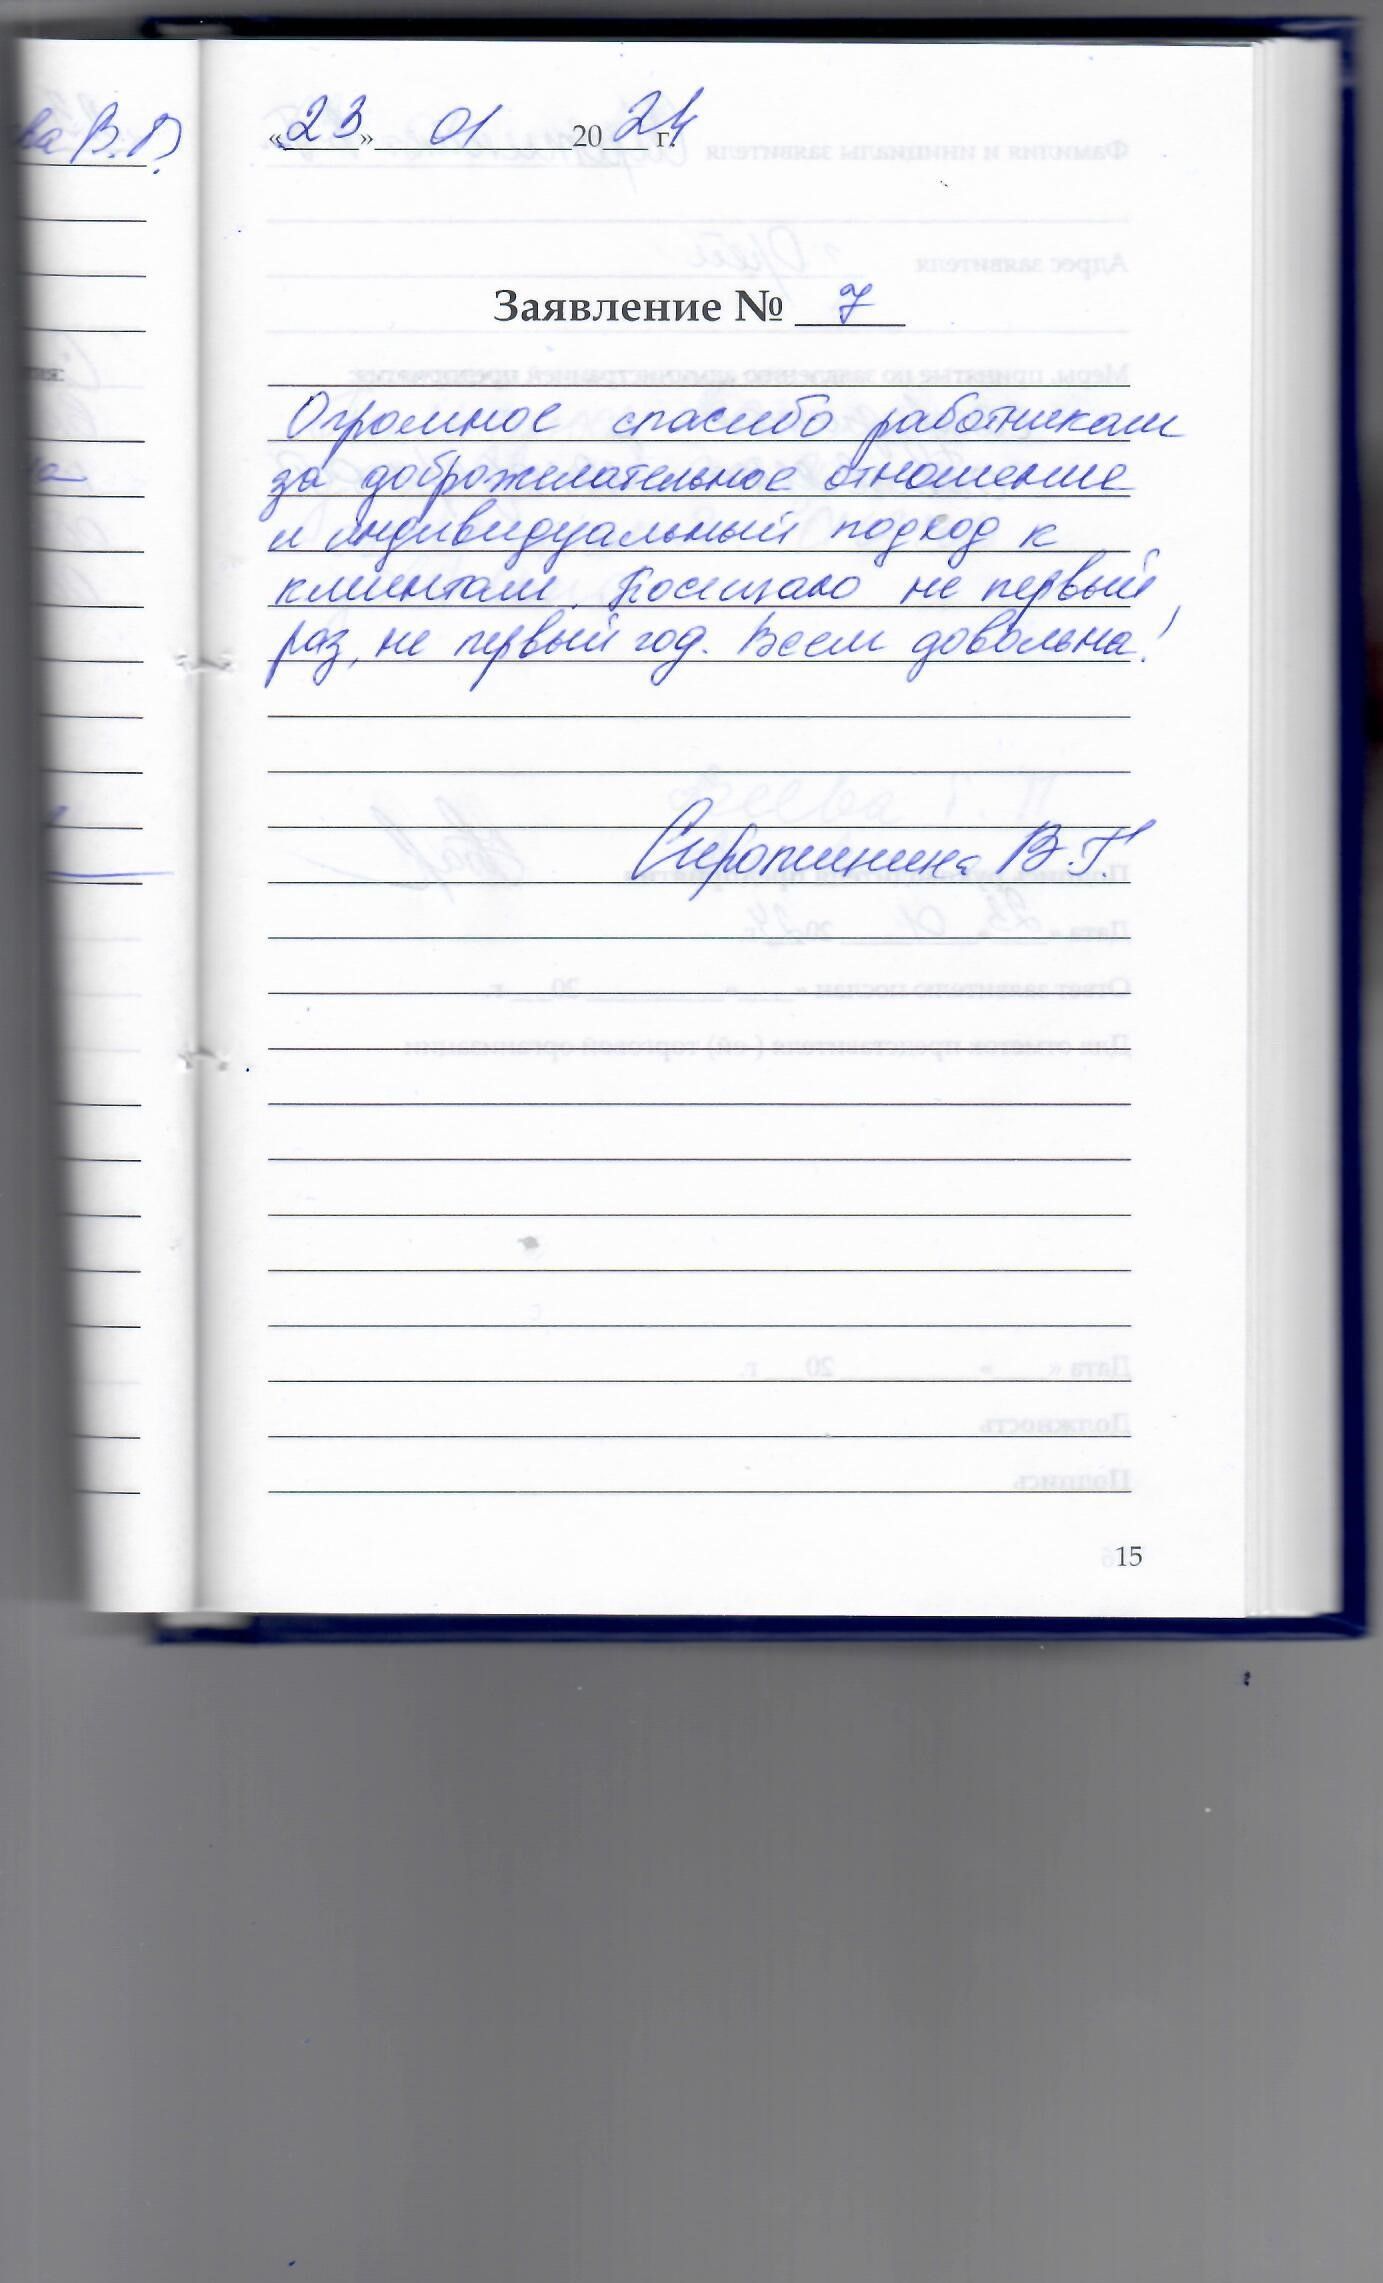 ва В.В.
«23» 01 2024 г.
Заявление № 7
Огромное спасибо работникам
за доброжелательное отношение
и индивидуальный подход к
клиентам. Посещаю не первый
раз, не первый год. Всем довольна!
Сиропшинина В.Г.
15